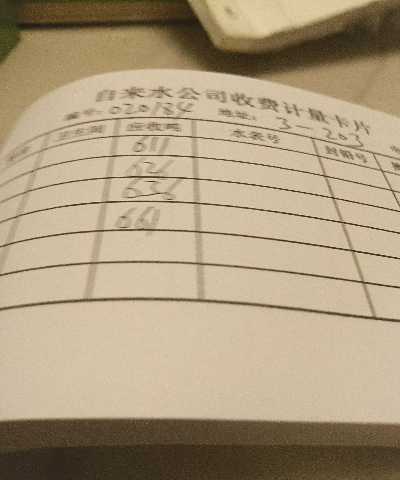 自来水公司收费计量卡片
编号: 020184 地址: 3-203
卫生间 应收吨 水表号 封铅号
611
626
636
661